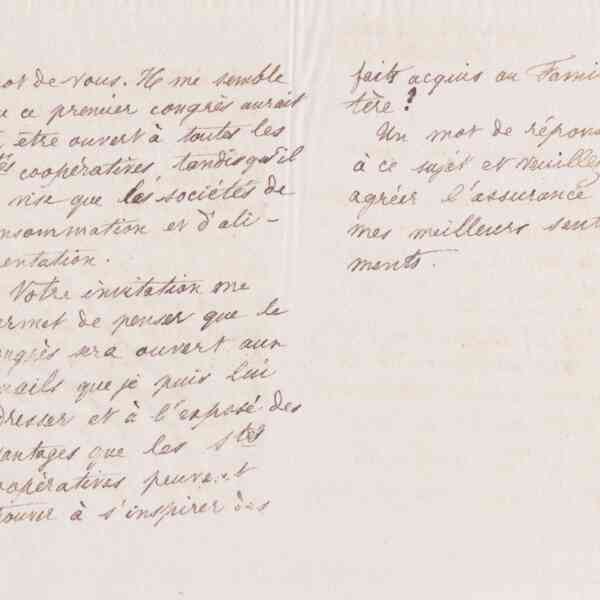 mot de vous. Il me semble
ce premier congrès aurait
être ouvert à toutes les
tés coopératives, tandis qu'il
vise que les sociétés de
nsommation et d'ali-
entation.
Votre invitation me
ermet de penser que le
ongrès sera ouvert aux
que je puis lui
dresser et à l'exposé des
vantages que les Stés
oopératives peuvent
rouver à s'inspirer des
faits acquis au Fami
tère ?
Un mot de répons
à ce sujet et veuillez
agréer l'assurance
mes meilleurs sent
ments.